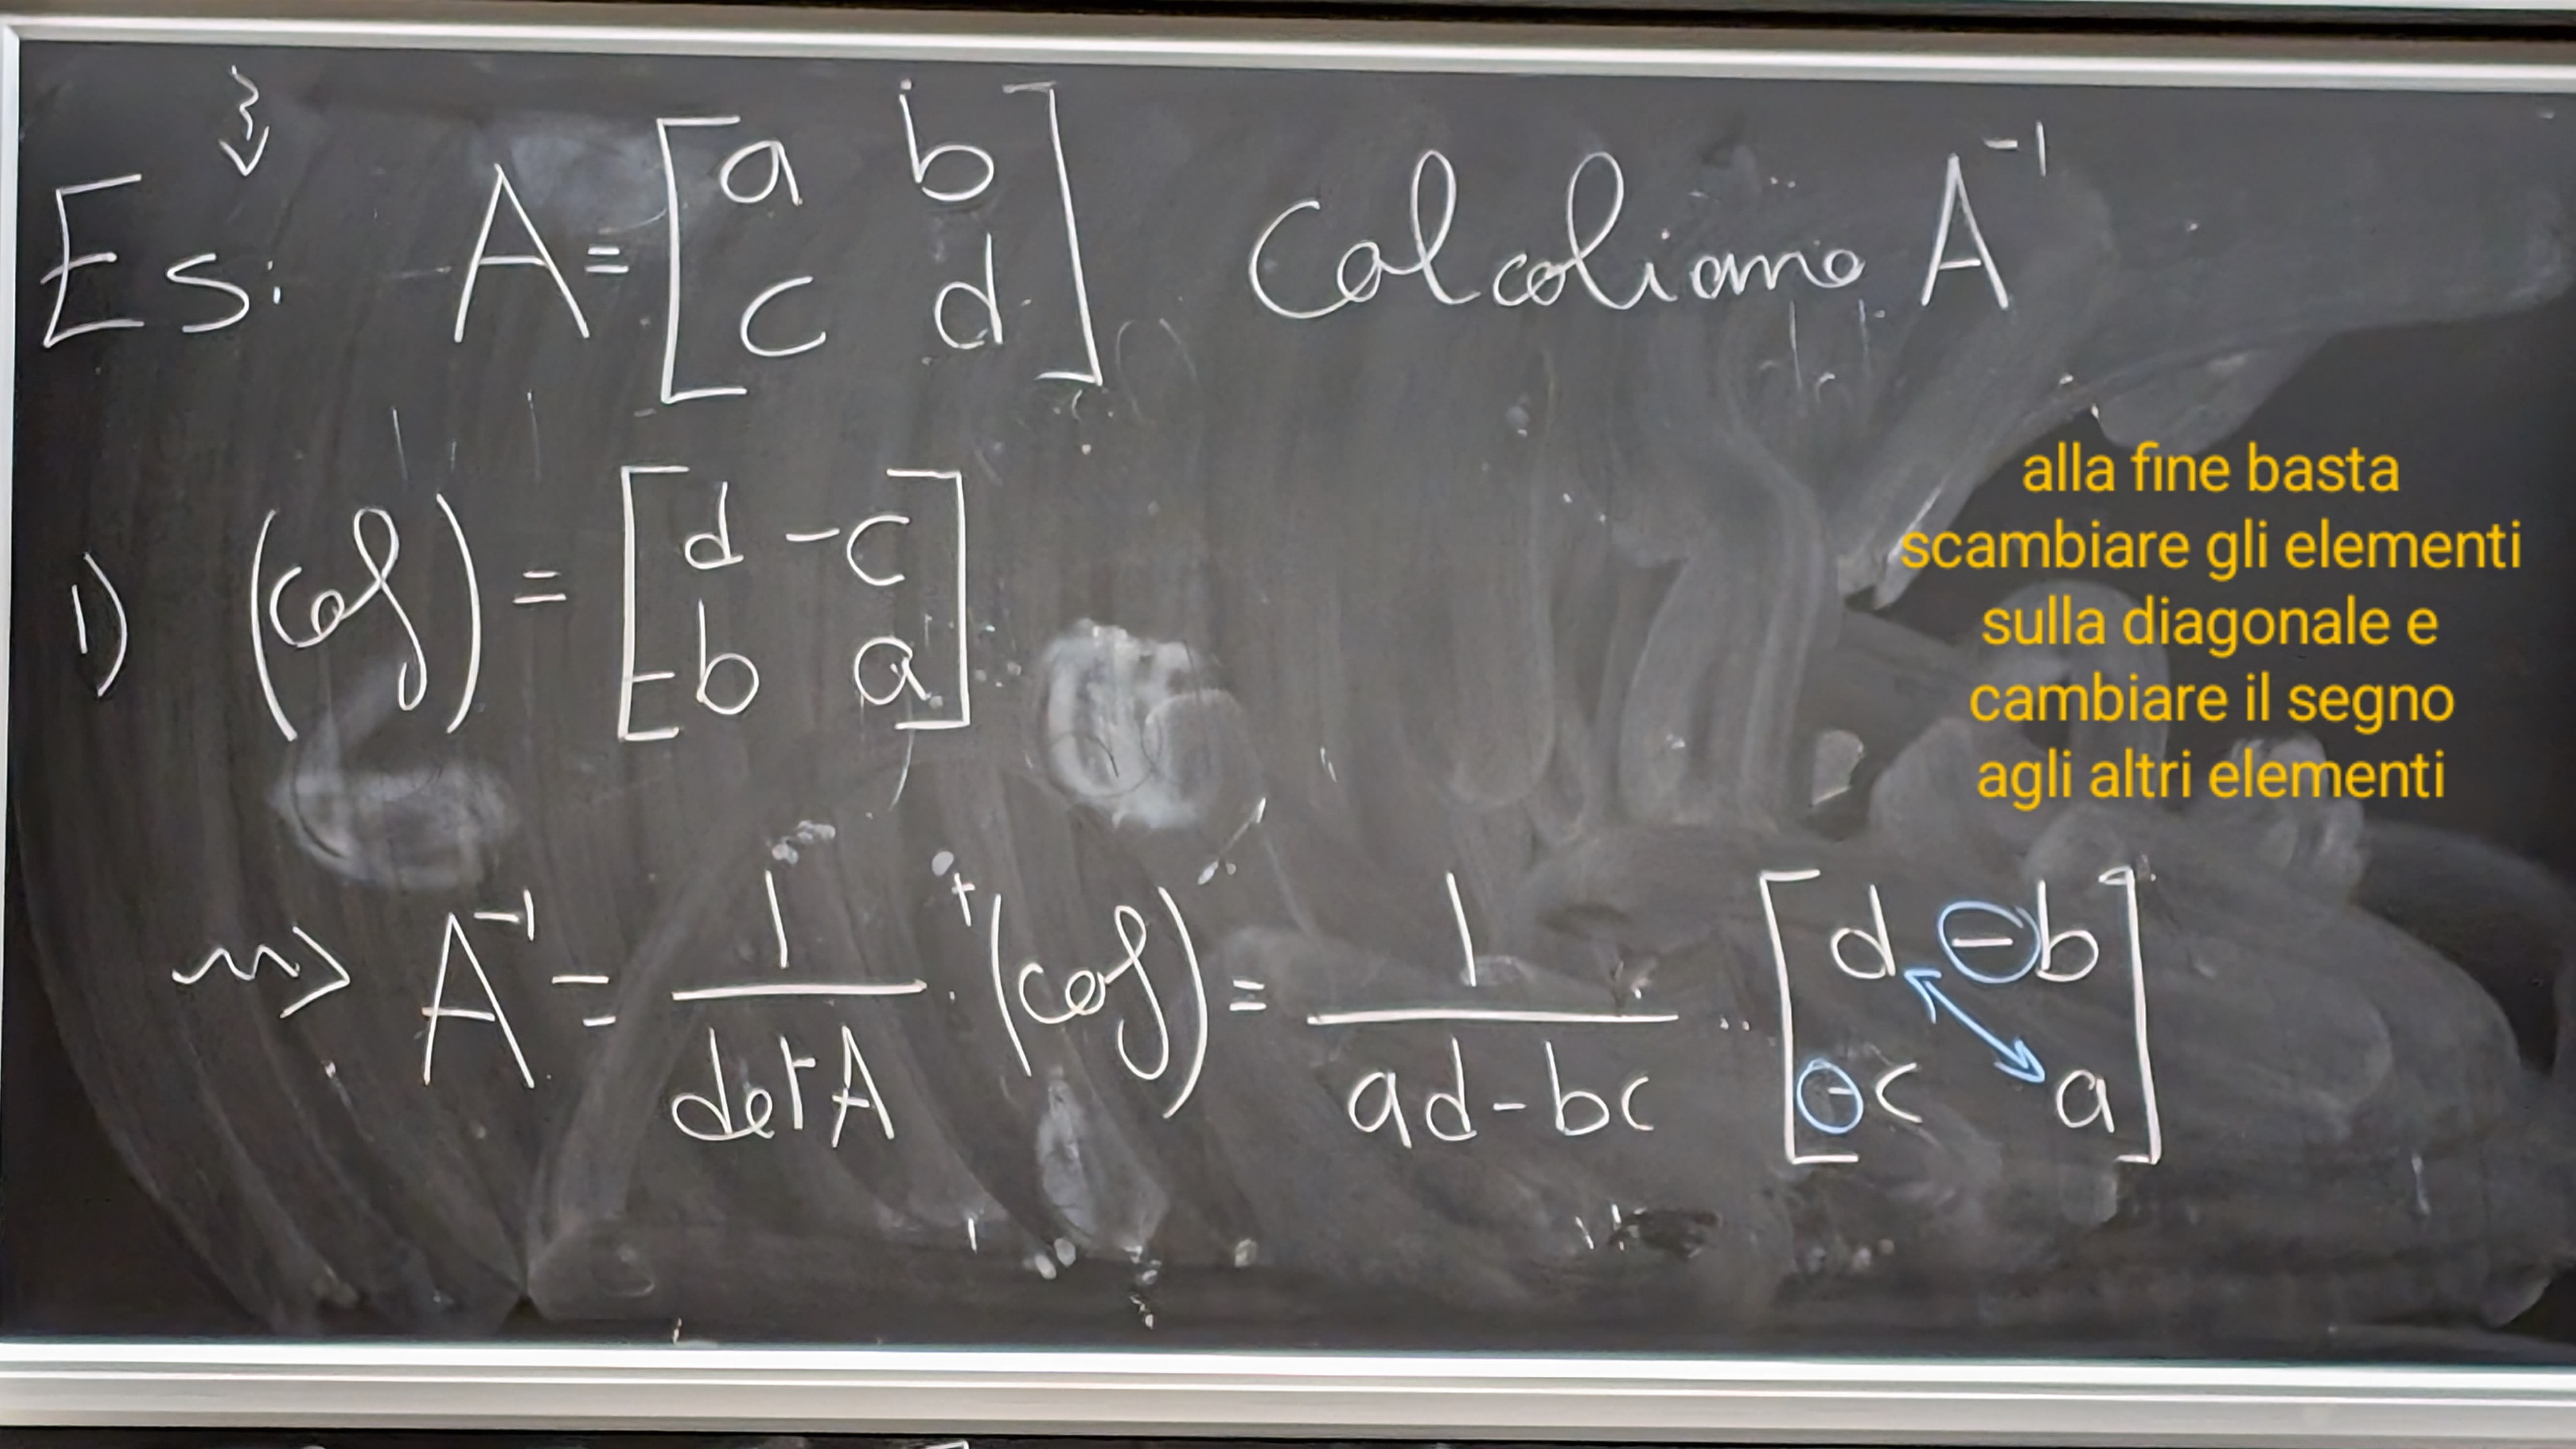 Es: A = [a b; c d] Calcoliamo A⁻¹
alla fine basta
scambiare gli elementi
sulla diagonale e
cambiare il segno
agli altri elementi
1) (cof) = [d -c; -b a]
⇝ A⁻¹ = 1/det A · ᵗ(cof) = 1/ad-bc · [d -b; -c a]